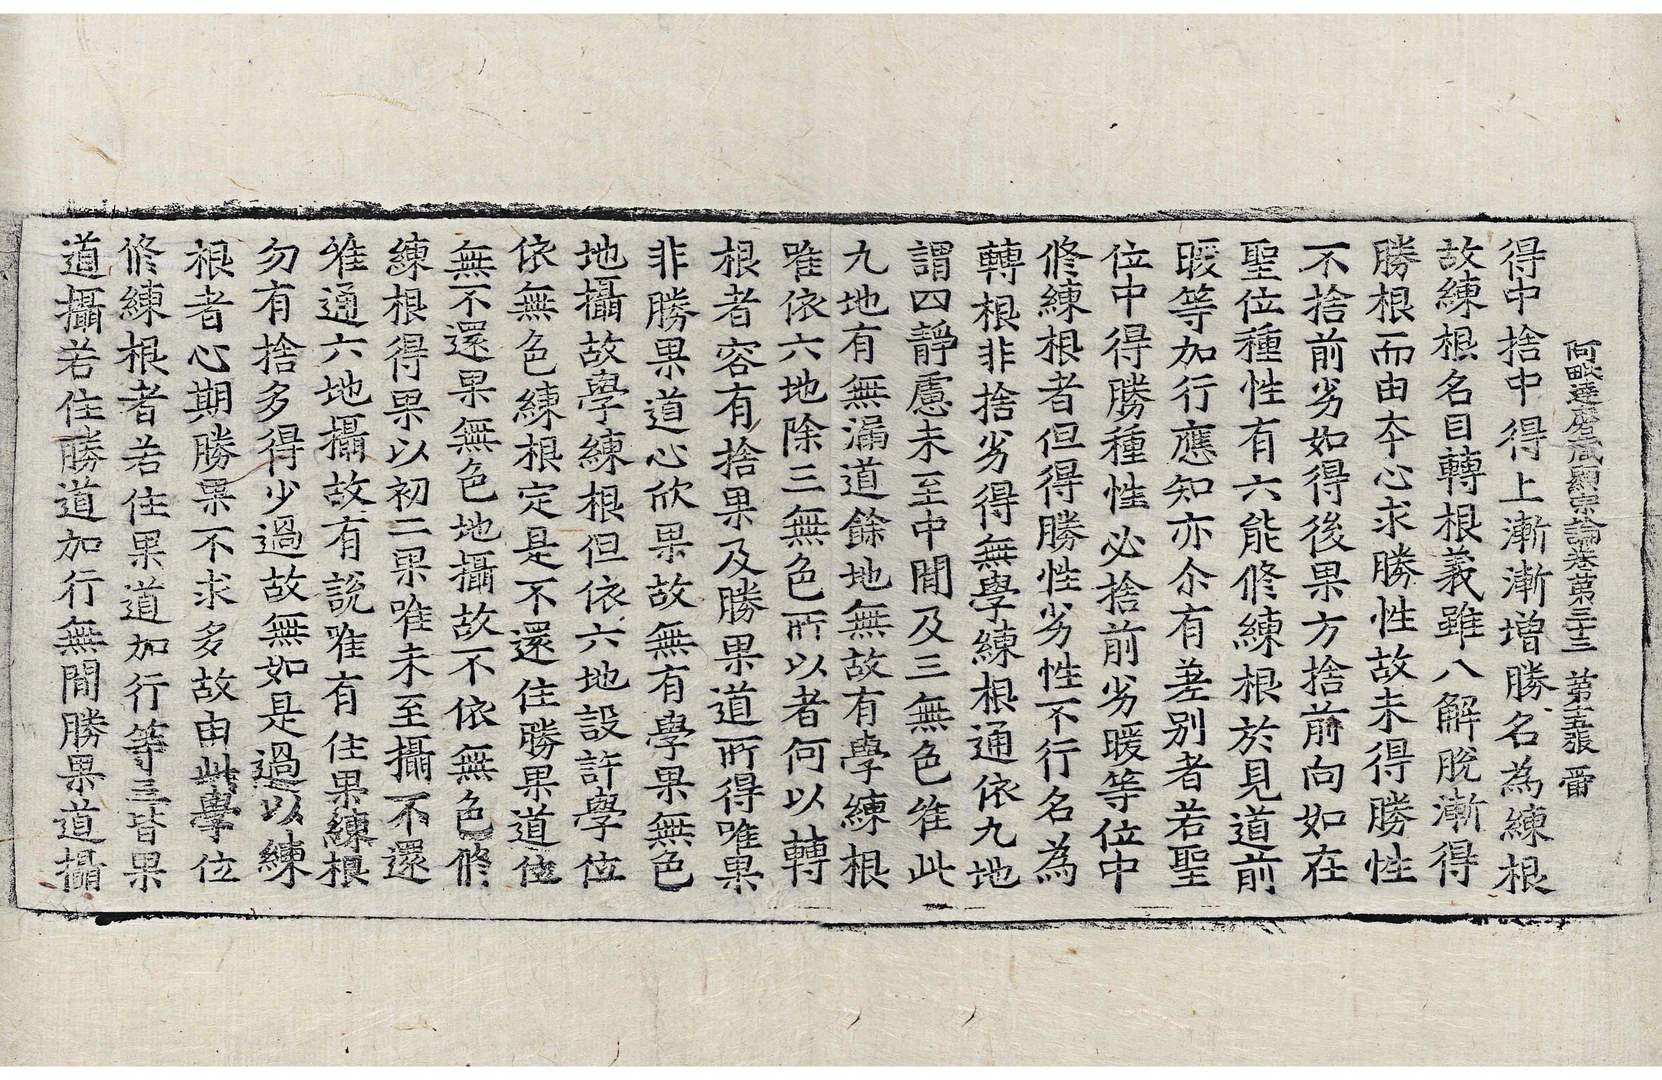 阿毗達磨藏顯宗論卷第三十三 第十五張
得中捨中得上漸漸增勝名為練根
故練根名目轉根義雖八解脫漸得
勝根而由本心求勝性故未得勝性
不捨前劣如得後果方捨前向如在
聖位種性有六能修練根於見道前
暖等加行應知亦尒有差別者若聖
位中得勝種性必捨前劣暖等位中
修練根者但得勝性劣性不行名為
轉根非捨劣得無學練根通依九地
謂四靜慮未至中閒及三無色唯此
九地有無漏道餘地無故有學練根
唯依六地除三無色所以者何以轉
根者容有捨果及勝果道所得唯果
非勝果道心欣果故無有學果無色
地攝故學練根但依六地設許學位
依無色練根定是不還住勝果道位
無不還果無色地攝故不依無色修
練根得果以初二果唯未至攝不還
唯通六地攝故有說唯有住果練根
勿有捨多得少過故無如是過以練
根者心期勝果不求多故由此學位
修練根者若住果道加行等三皆果
道攝若住勝道加行無閒勝果道攝